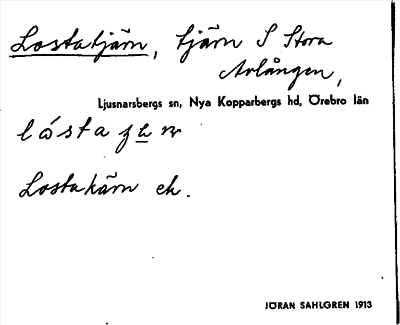 Lostatjärn, tjärn S Stora
Avlången,
Ljusnarsbergs sn, Nya Kopparbergs hd, Örebro län
Lostakärn ek.
JÖRAN SAHLGREN 1913